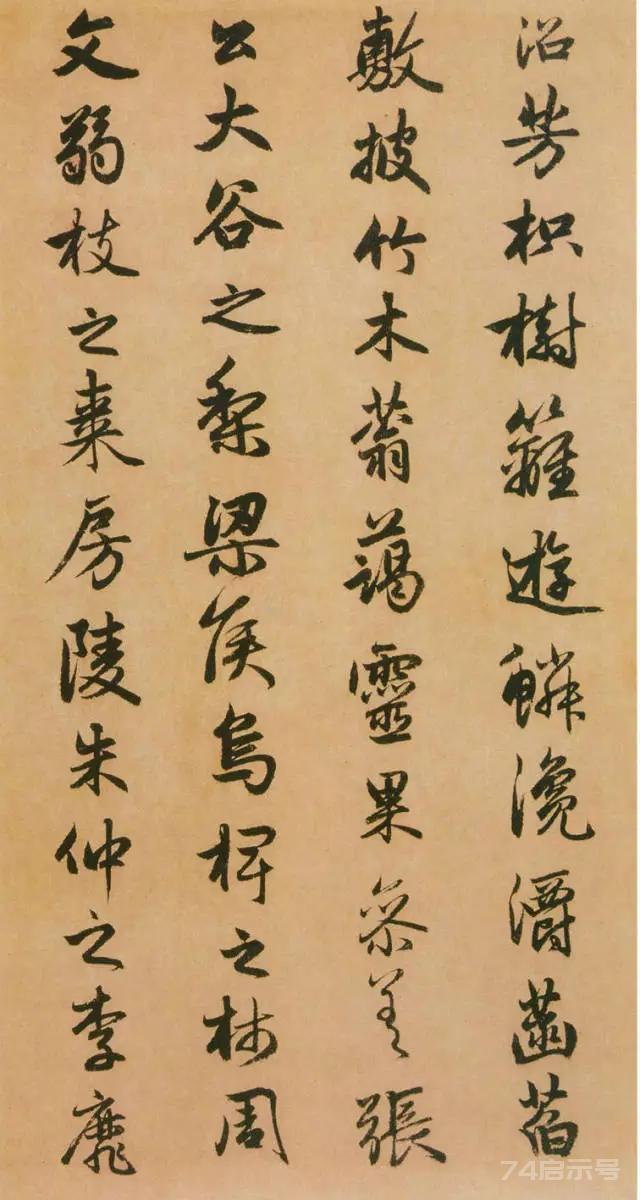 沼芳枳樹籬遊鱗瀺灂菡萏
敷披竹木蓊藹靈果參差張
公大谷之梨梁侯烏椑之柿周
文弱枝之棗房陵朱仲之李靡
74启示号